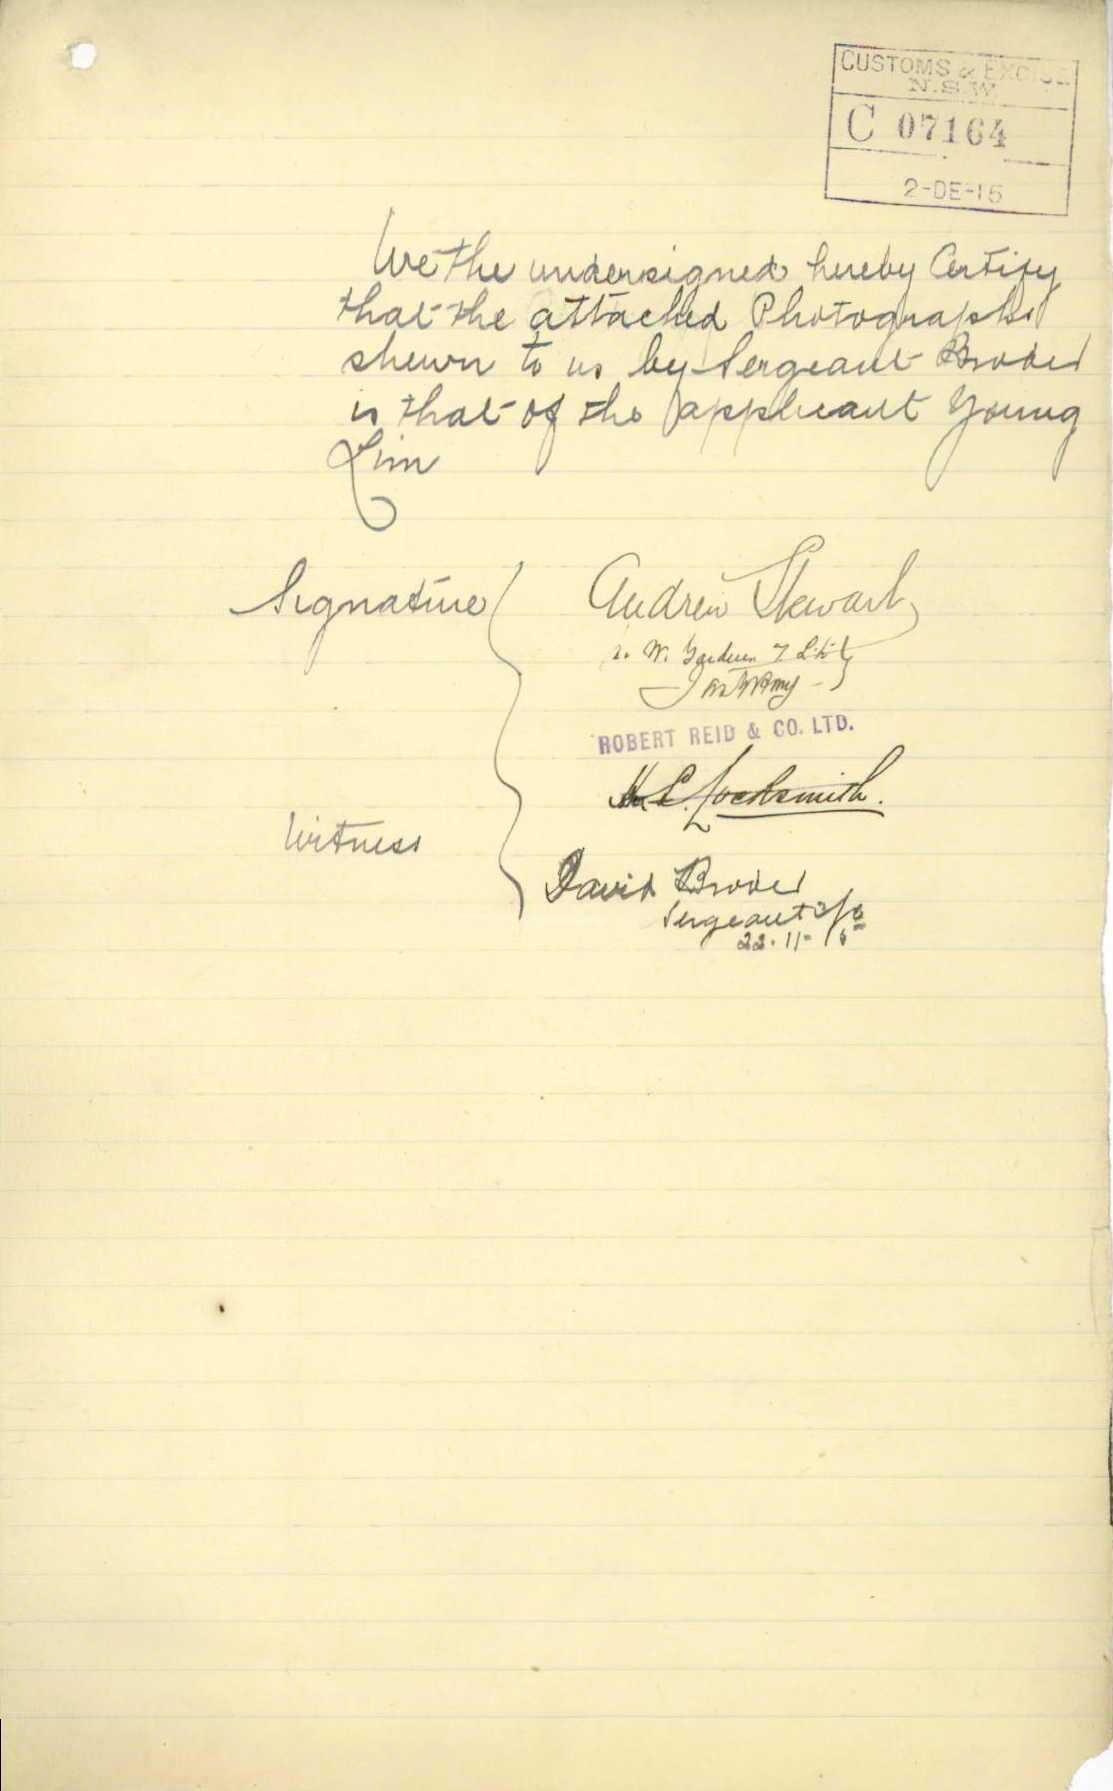 CUSTOMS & EXCISE
N.S.W.
C 07164
2-DE-15
We the undersigned hereby Certify
that the attached Photographs
shewn to us by Sergeant Broder
is that of the applicant Young
Lim
Signature
Andrew Stewart
W.
ROBERT REID & CO. LTD.
Locksmith.
Witness
David Broder
Sergeant
22.11.